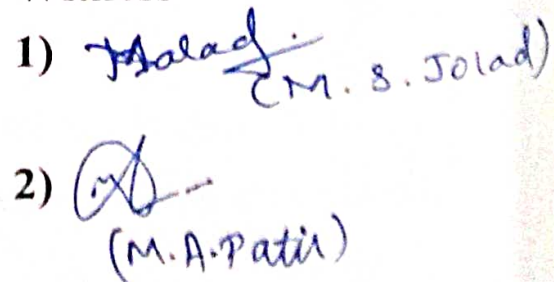 1)
(M. S. Jolad)
2)
(M.A. Patil)